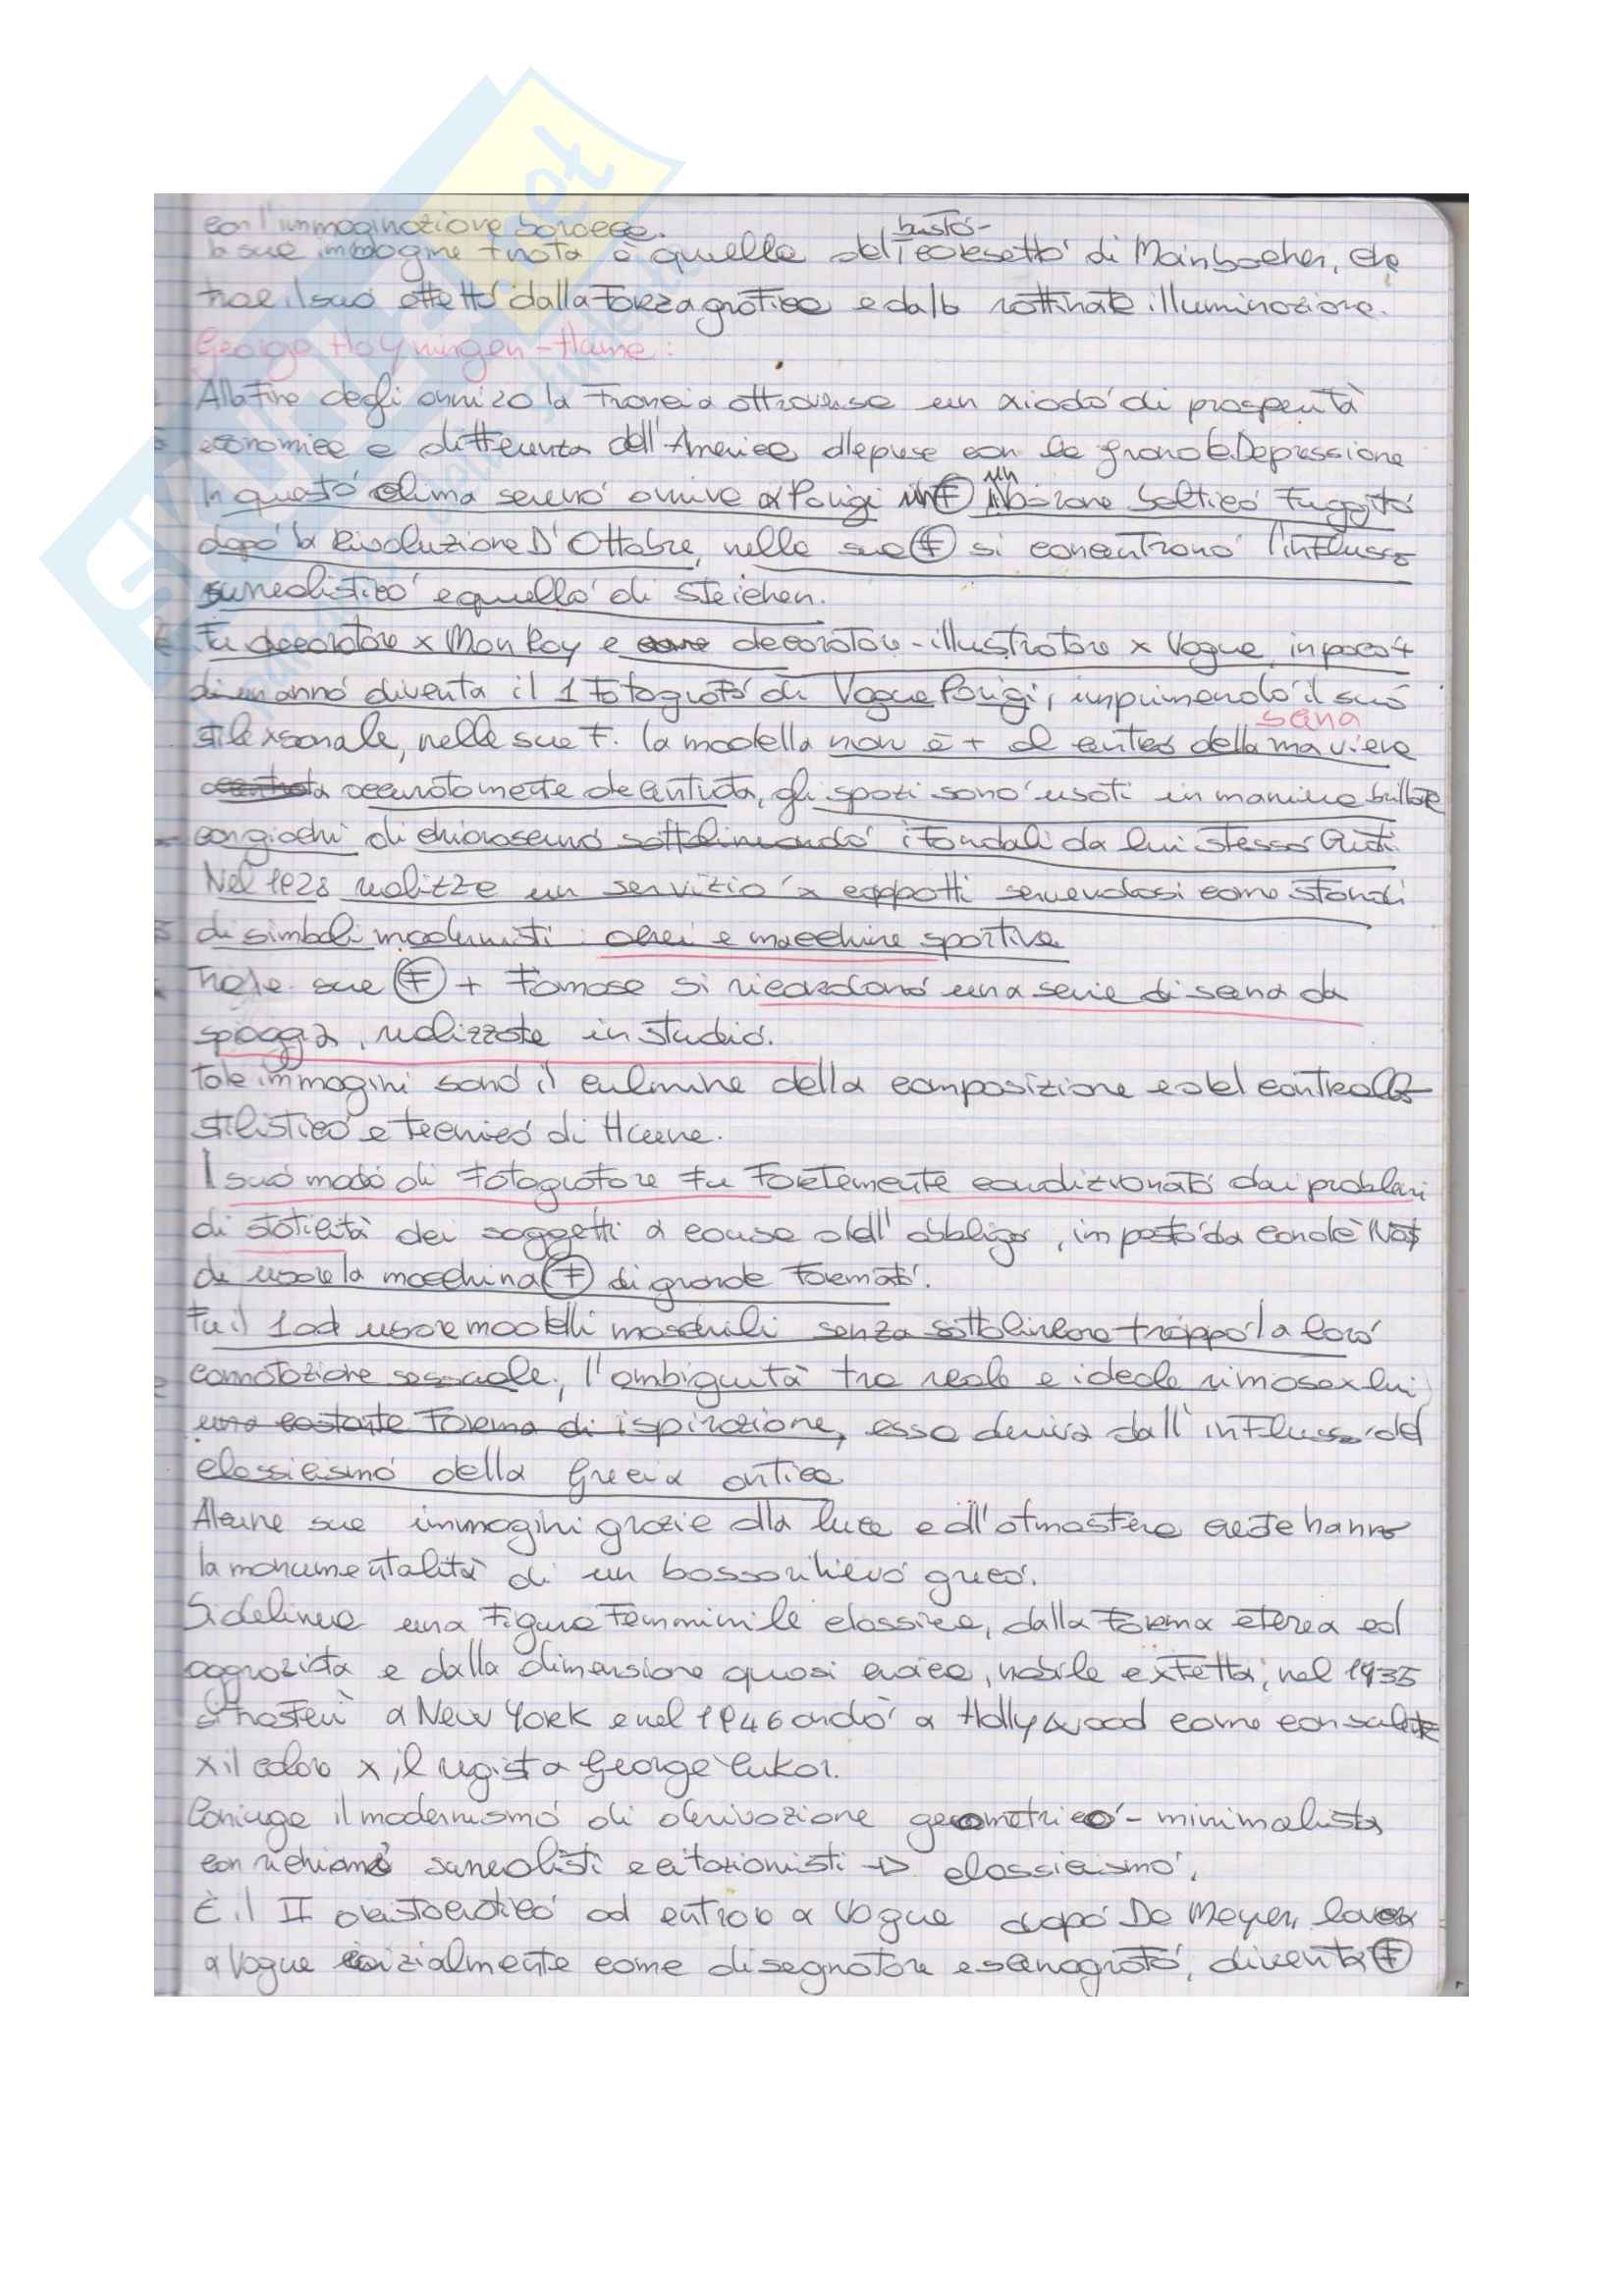 con l'immaginazione barocca.
busto-
la sua immagine + nota è quella del corsetto di Mainbocher, che
trae il suo effetto dalla forza grafica e dalla raffinata illuminazione.
George Hoyningen-Huene:
Alla fine degli anni 20 la Francia attraversa un xiodo di prosperità
economica a differenza dell'America alle prese con la grande Depressione
In questo clima sereno arriva a Parigi un barone baltico fuggito
dopo la Rivoluzione D'Ottobre, nelle sue F si concentrano l'influsso
surrealistico e quello di Steichen.
Fu decoratore x Man Ray e decoratore-illustratore x Vogue, in poco +
di un anno diventa il 1 fotografo di Vogue Parigi, imprimendo il suo
scena
stile xsonale, nelle sue F. la modella non è + al centro della ma viene
accuratamente decentrata, gli spazi sono usati in maniera brillante
con giochi di chiaroscuro sottolineando i fondali da lui stesso creati.
Nel 1928 realizza un servizio x cappotti servendosi come sfondi
di simboli modernisti: aerei e macchine sportive
Tra le sue F + famose si ricordano una serie di scena da
spiaggia, realizzate in studio.
Tale immagini sono il culmine della composizione e del controllo
stilistico e tecnico di Huene.
Il suo modo di fotografare fu fortemente condizionato dai problemi
di staticità dei soggetti a causa dell'obbligo, imposto da Condè Nast
di usare la macchina F di grande formato.
Fu il 1 ad usare modelli maschili senza sottolineare troppo la loro
connotazione sessuale, l'ambiguità tra reale e ideale rimase x lui
una costante forma di ispirazione, essa deriva dall'influsso del
classicismo della Grecia antica
Alcune sue immagini grazie alla luce e all'atmosfera create hanno
la monumentalità di un bassorilievo greco.
Si delinea una figura femminile classica, dalla forma eterea ed
aggraziata e dalla dimensione quasi eroica, nobile e xfetta; nel 1935
si trasferì a New York e nel 1946 andò a Hollywood come consulente
x il colore x il regista George Cukor.
Coniuga il modernismo di derivazione geometrico-minimalista
con richiami surrealisti e citazionisti → classicismo.
È il II aristocratico ad entrare a Vogue dopo De Meyer, lavora
a Vogue inizialmente come disegnatore e scenografo, diventa F